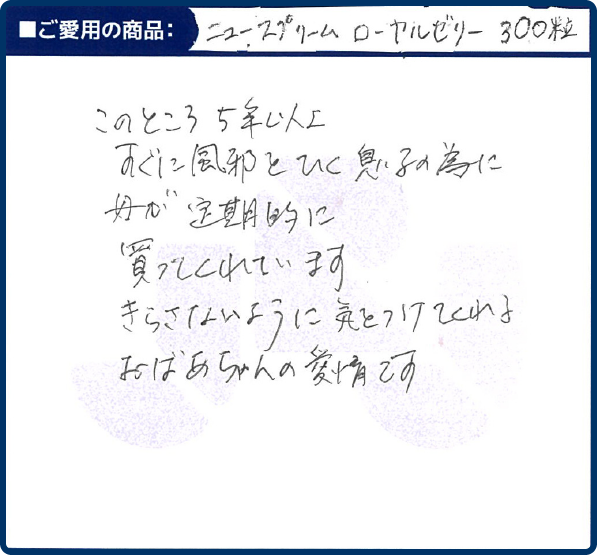 ■ご愛用の商品: ニュースプリーム ローヤルゼリー 300粒
このところ 5年以上
すぐに風邪をひく息子の為に
母が定期的に
買ってくれています
きらさないように気をつけてくれる
おばあちゃんの愛情です